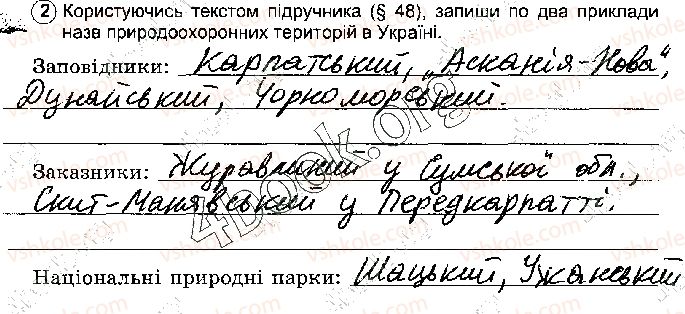 2 Користуючись текстом підручника (§ 48), запиши по два приклади
назв природоохоронних територій в Україні.
Заповідники: Карпатський, „Асканія-Нова“,
Дунайський, Чорноморський.
Заказники: Журавлиний у Сумській обл.,
Скит-Манявський у Передкарпатті.
Національні природні парки: Шацький, Ужанський
4book.org
vshkole.com